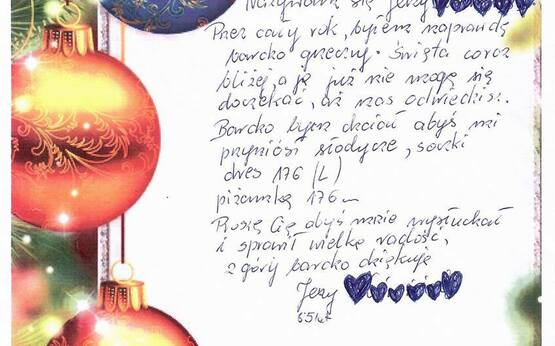 Nazywam się Jerzy
Przez cały rok, byłem naprawdę
bardzo grzeczny. Święta coraz
bliżej a ja już nie mogę się
doczekać, aż nas odwiedzisz.
Bardzo bym chciał abyś mi
przyniósł słodycze, soczki
dres 176 (L)
piżamkę 176
Proszę Cię abyś mnie wysłuchał
i sprawił wielką radość,
z góry bardzo dziękuję
Jerzy
55 lat